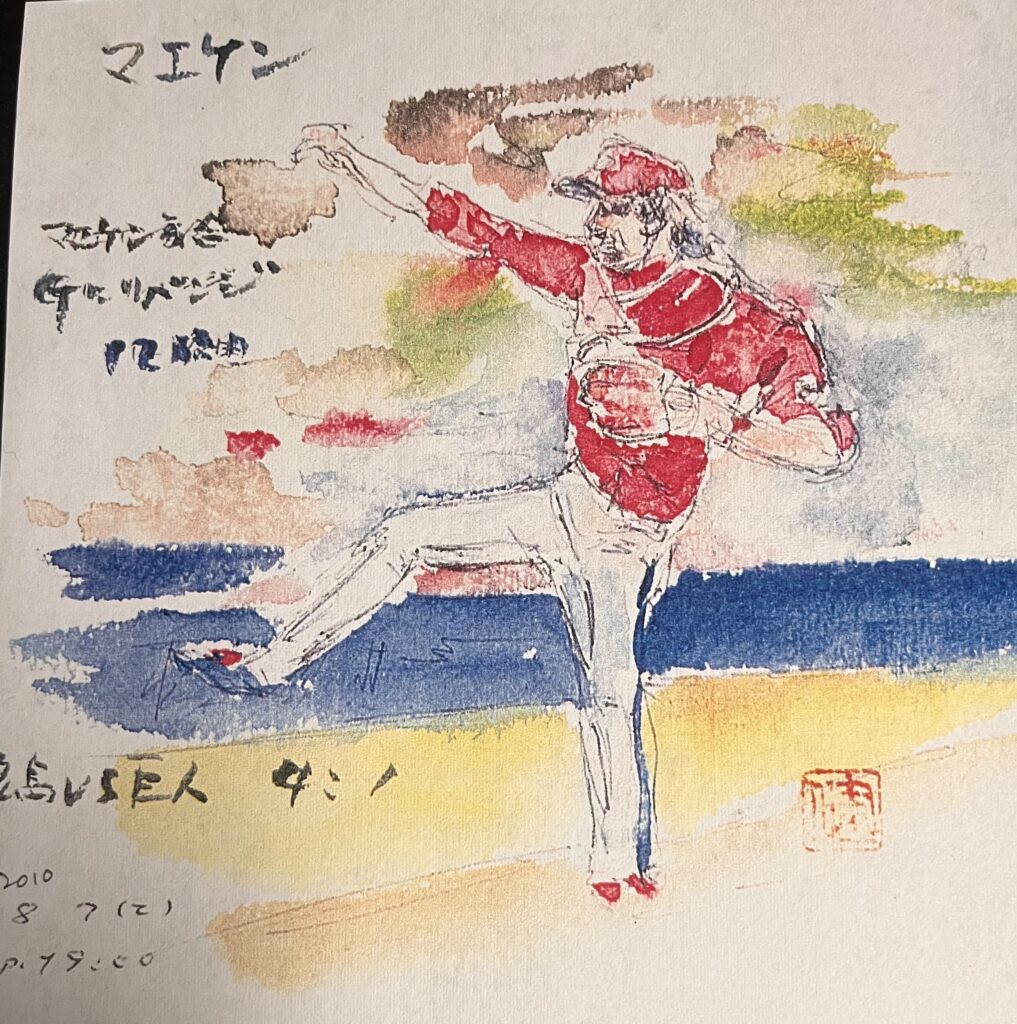 マエケン
マエケン
Gにリベンジ
12勝目
島vs巨人 4:1
2010
8 7 (土)
9:00